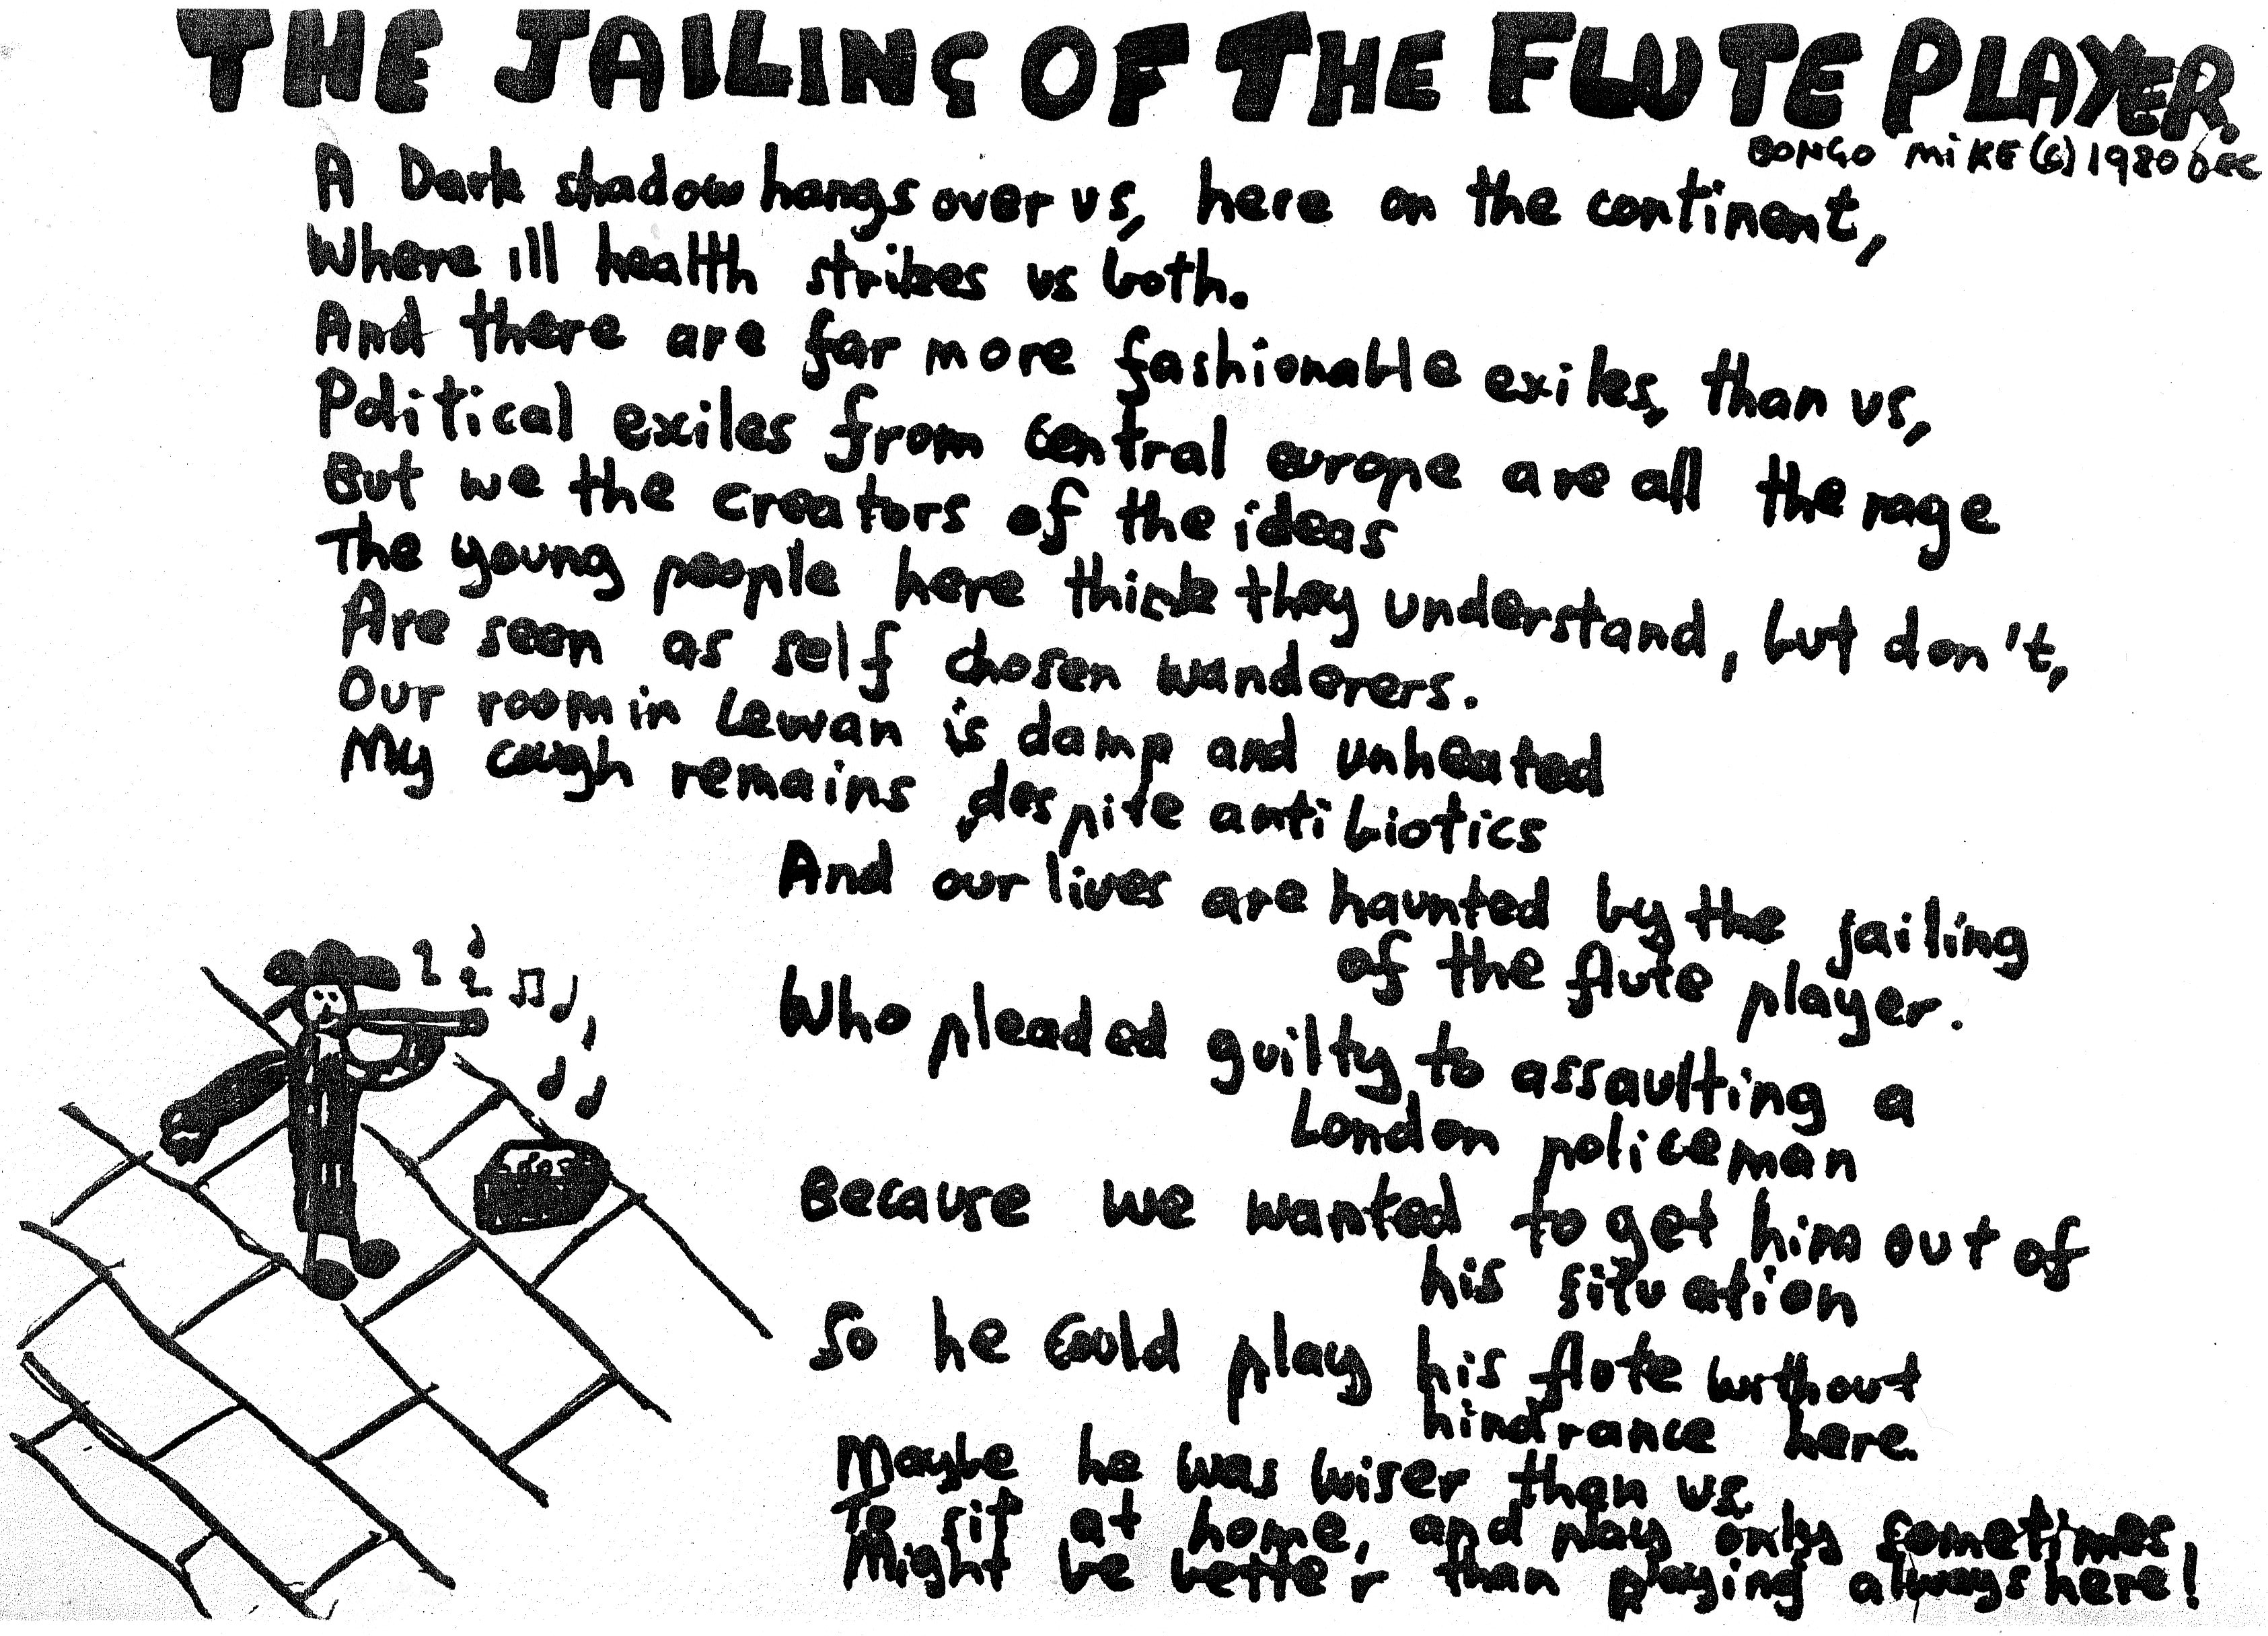 THE JAILING OF THE FLUTE PLAYER.
BONGO MIKE (C) 1980 DEC
A Dark shadow hangs over us, here on the continent,
Where ill health strikes us both.
And there are far more fashionable exiles, than us,
Political exiles from central europe are all the rage
But we the creators of the ideas
The young people here think they understand, but don't,
Are seen as self chosen wanderers.
Our room in Lewan is damp and unheated
My cough remains despite anti biotics
And our lives are haunted by the jailing
of the flute player.
Who pleaded guilty to assaulting a
London policeman
Because we wanted to get him out of
his situation
So he could play his flute without
hindrance here.
Maybe he was wiser than us.
To sit at home, and play only sometimes,
Might be better than playing always here!